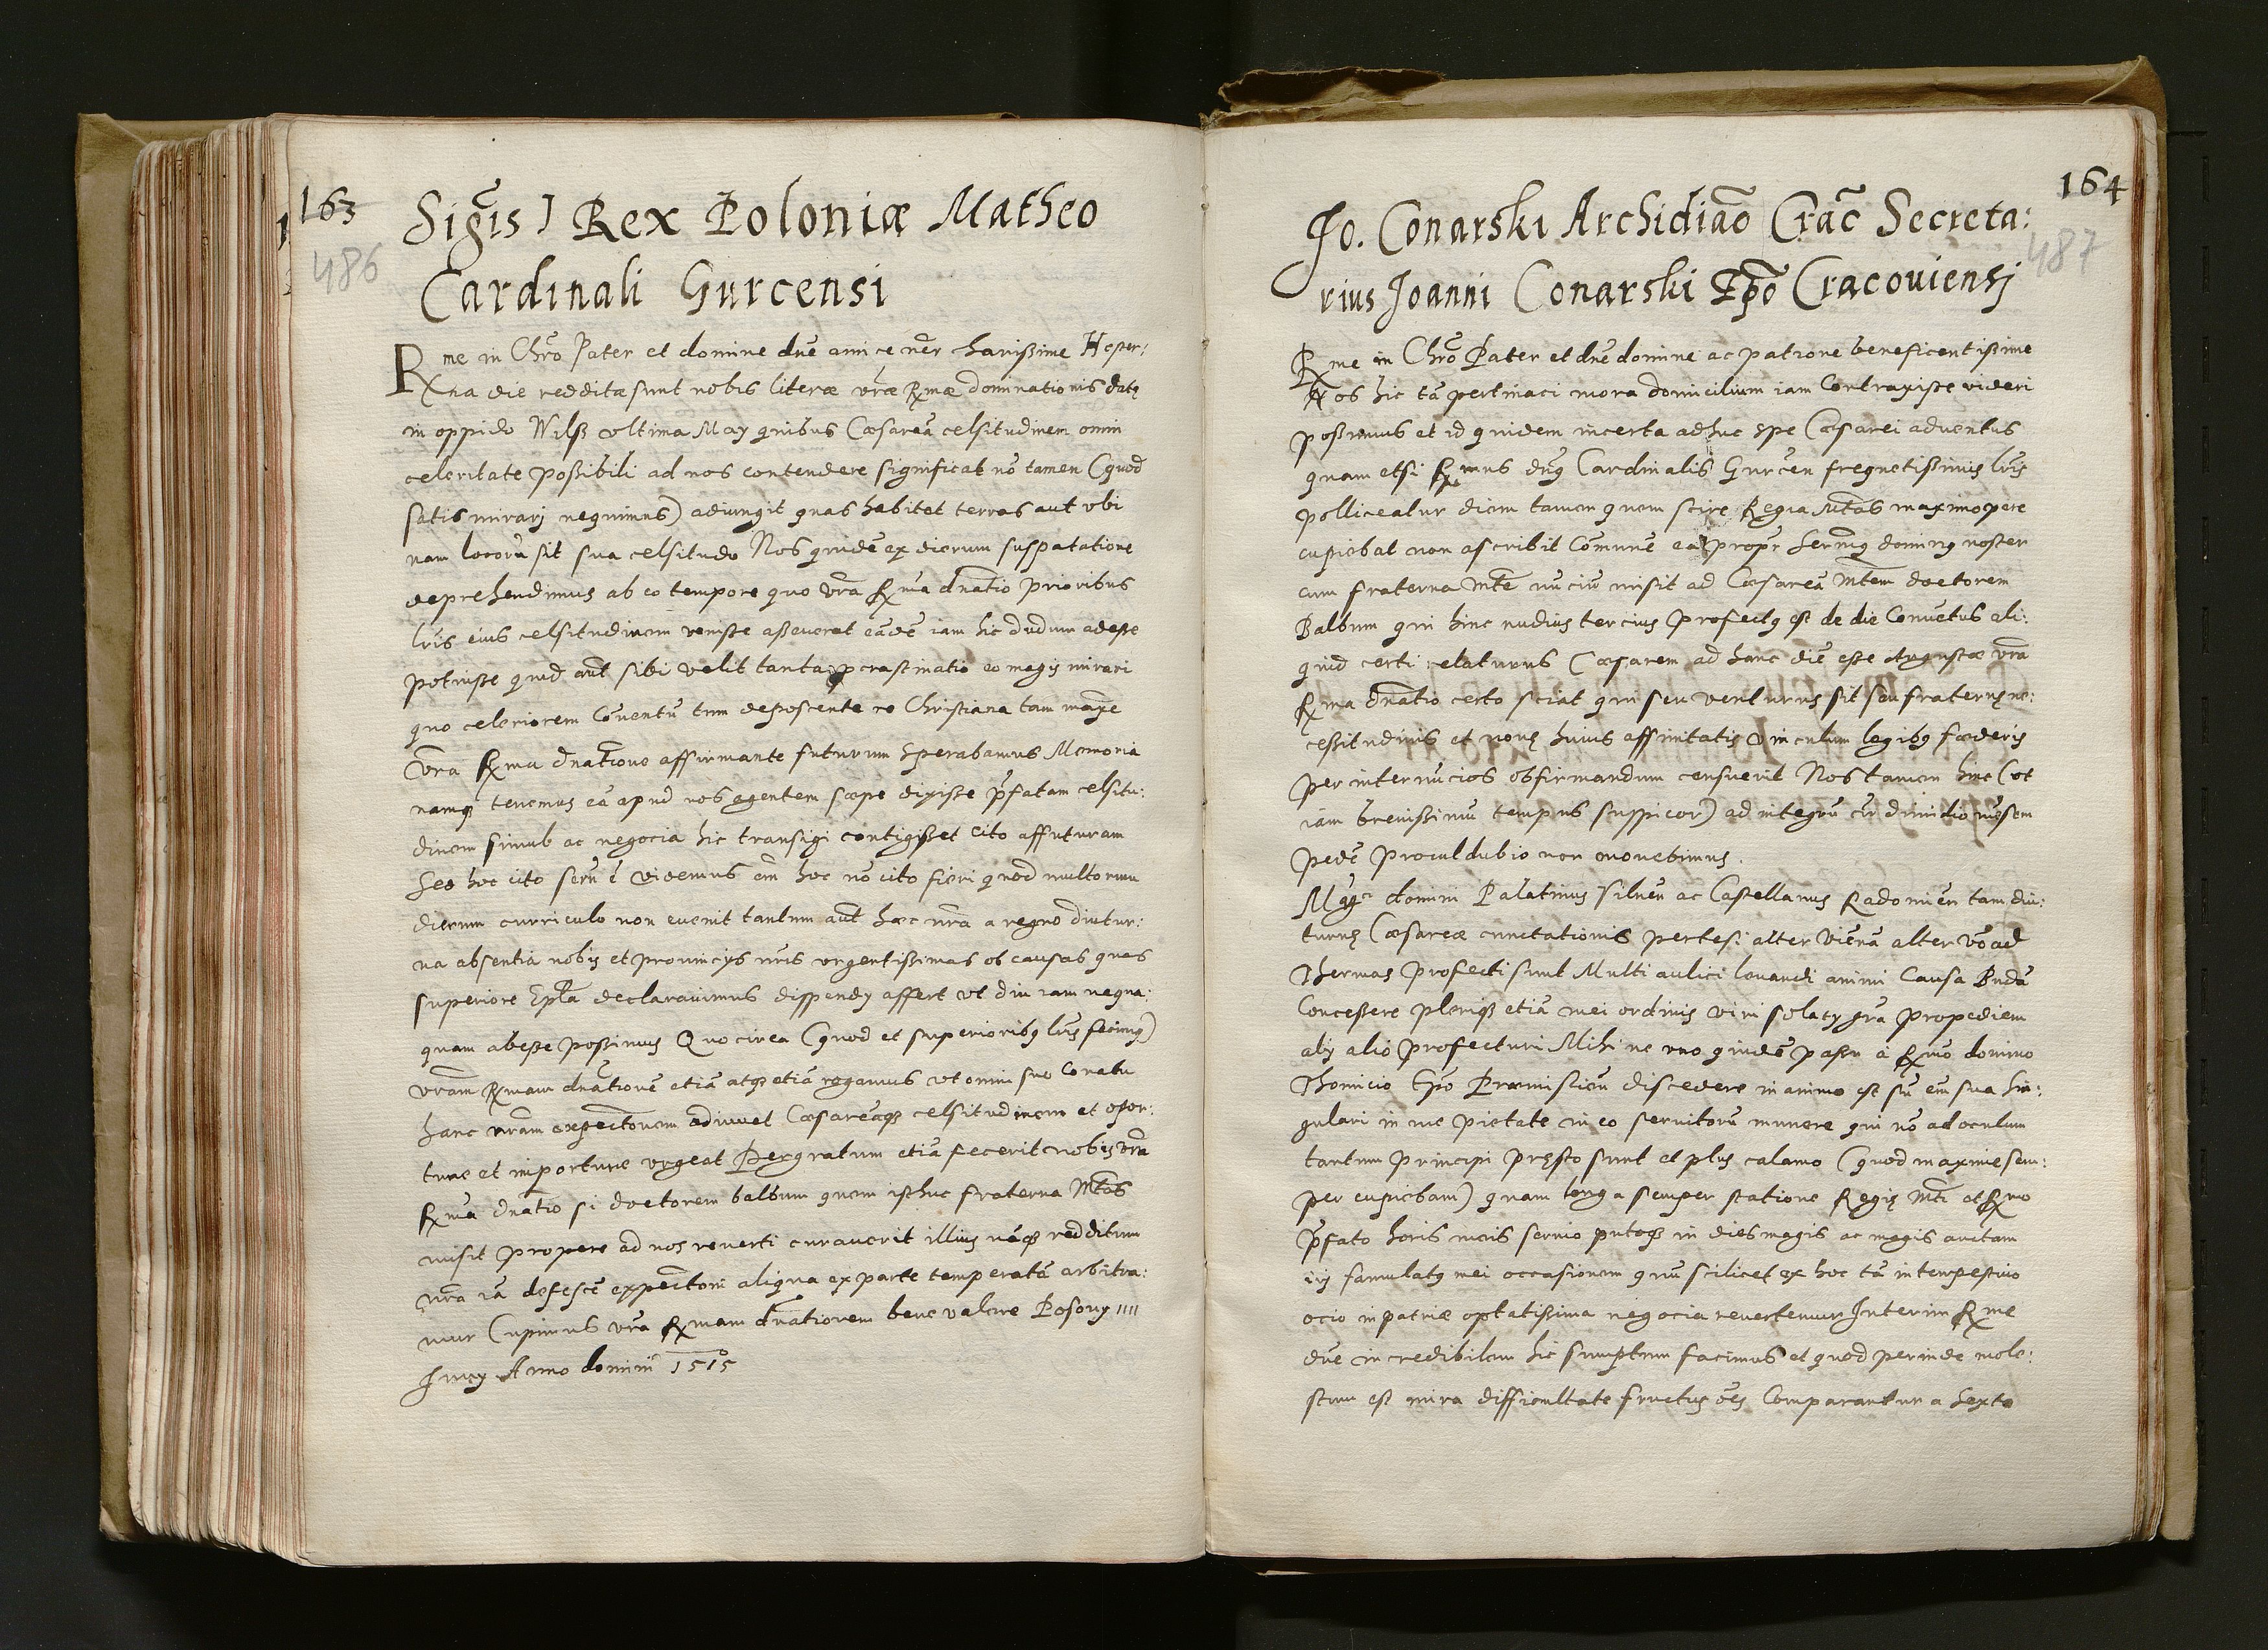 163
486
Sigis̄ I Rex Poloniæ Matheo
Cardinali Gurcensi
Rme in Chrō Pater et domine dne amice nēr charißime Hester:
na die redditæ sunt nobis literæ vrāe Rmæ dominationis datę
in oppido Wilß vltima May quibus Cæsareā celsitudinem omni
celeritate poßibili ad nos contendere significat nō tamen (quod
satis mirarj nequimus) adiungit quas habitet terras aut vbi
nam locorū sit sua celsitudo Nos quidē ex dierum susputatione
deprehendimus ab eo tempore quo vrā Rma dnātio prioribus
lrīs eius celsitudinem venisse aßeuerat eādē iam hic dudum adeße
potuisse quid aut̄ sibi velit tanta pcrastinatio eo magis mirari
quo celeriorem Conentū tum deposcente re Christiana tam maxīe
Vrā Rma dnātione affirmante futurum sperabamus Memoria
namq tenemus eā apud nos agentem sæpe dixiße p̄fatam celsitu:
dinem simul ac negocia hic transigi contigißet cito affuturam
Sed hoc cito serū ē videmus em̄ hoc nō cito fieri quod multorum
dierum curriculo non euenit tantum aut̄ hæc nrā a regno diutur:
na absentia nobis et prouincijs nrīs vrgentißimas ob causas quas
superiore Epl̄a declarauimus dispendy affert vt diu iam nequa:
quam abeße poßimus Quo circa (quod et superioribq lrīs fecimq)
vrām Rmam dnātionē etiā atq etiā rogamus vt omni suo Conatu
hanc nrām expectōnem adiuuet Cæsareāq celsitudinem et opor:
tune et importune vrgeat Pergratum etiā fecerit nobis vrā
Rma dnātio si doctorem balbum quem isthuc fraterna Mtas̄
misit propere ad nos reuerti curauerit illius nāq redditum
nrā iā defesse expectōni aliqua ex parte temperatā arbitra:
mur Cupimus vrā Rmam dnātionem bene valere Posony 1111
Juny Anno domini 1515
164
487
Jo. Conarski Archidiaō Crac̄ Secreta:
rius Joanni Conarski Epō Cracouiensj
Rme in Chrō Pater et dnē domine ac patrone beneficentißime
Nos hic tā pertinaci mora domicilium iam Contraxiße videri
poßimus et id quidem incerta adhuc spe Cæsarei aduentus
quam etsi Rmus dnq Cardinalis Gurcen̄ freqnetißimis lrīs
polliceatur diem tamen quem scire Regia Mtas̄ maximopere
cupiebat non ascribit Comunē ea propr̄ Sermq dominq noster
cum fraterna Mte nūciū misit ad Cæsareā Mtem doctorem
Balbum qui hinc nudius tercius profectq est de die Conuētus ali:
quid certi relaturus Cæsarem ad hanc diē eße Augustæ vrā
Rma dnātio certo sciat qui seu venturus sit seu fraternę ne:
ceßitudinis et nouę huius affinitatis vinculum legibq fœderis
per internūcios obfirmandum censuerit Nos tamen hinc (vt
iam breuißimū tempus suspicor) ad integrū cū dimidio mēsem
pedē proculdubio non mouebimus.
Mgci domini Palatinus Vilnēn ac Castellanus Radomien̄ tam diu:
turnę Cæsareæ cunctationis pertesi alter Viēnā alter vō ad
Thermas profecti sunt Multi aulici leuandi animi causa Budā
Conceßere plerique etiā mei ordinis viri solacy grā propediem
aly alio profecturi Mihi ne vno quidē paßu a Rmō domino
Thomicio Epō Præmislien̄ discedere in animo est sū em̄ sua sin:
gulari in me pietate in eo seruitorū munere qui nō ad oculum
tantum principi pręsto sunt et plus calamo (quod maxime sem:
per cupiebam) quam longa semper statione Regię Mti et Rmo
p̄fato horis meis seruio putoq in dies magis ac magis auctam
iri famulatq mei occasionem quū scilicet ex hoc tā intempestiuo
ocio in patriæ optatißima negocia reuertemur Interim Rme
dnē incredibilem hic sumptum facimus et quod perinde mole:
stum est mira difficultate fructus oēs Comparantur a sexta